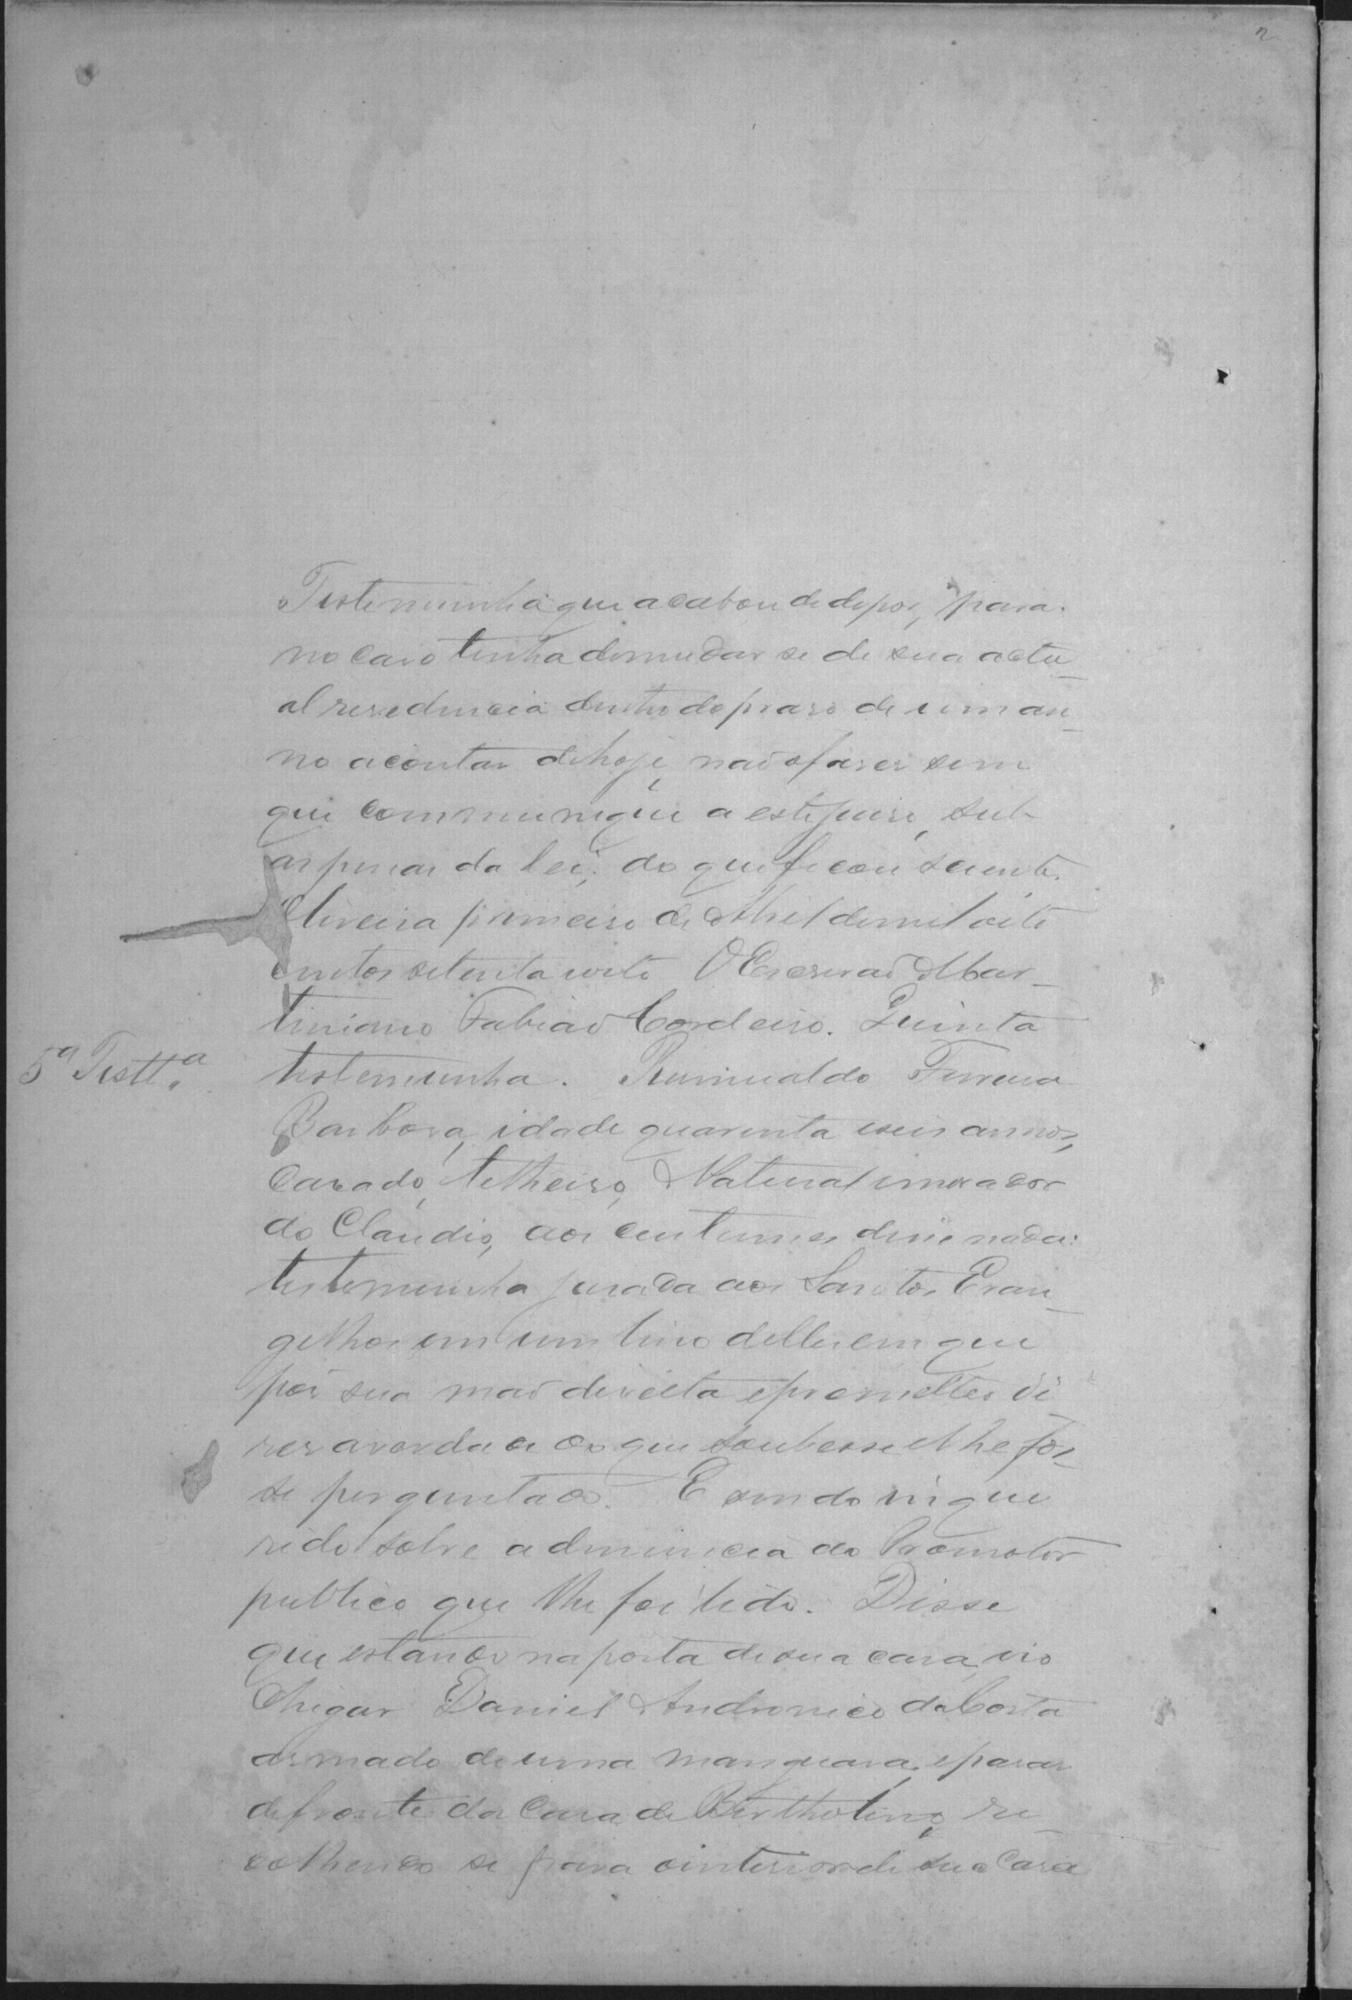 2
Testemunha que acabou de depor, para
no caso tenha de mudar se de sua actu_
al residencia dentro do praso de um an_
no a contar de hoje, não o faser sem
que communique a este juiso, sub
as penas da lei; do que ficou sciente.
Oliveira primeiro de Abril de mil oito
centos setenta e oito O Escrivaõ Mar_
tiniano Fabiaõ Cordeiro. Quinta
5ª Testt.ª
testemunha. Rumualdo Ferreira
Barbosa, idade quarenta e seis annos,
casado, telheiro, Natural e morador
do Claudio, aos custumes disse nada:
testemunha jurada aos Santos Evan_
gelhos em um livro delles em que
pôs sua maõ direita e prometteu di
ser a verdade do que soubesse e lhe fos_
se perguntado. E sendo inque
rido sobre a denuncia do Promotor
publico que lhe foi lida. Disse
que estando na porta de sua casa, vio
chegar Daniel Andronico da Costa
armado de uma manguara, e parar
defronte da Casa de Bertholino, re_
colhendo se para o interior de sua Casa